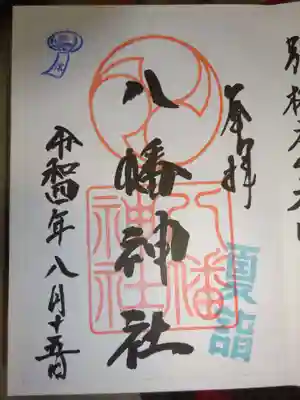 奉拝
八幡神社
八幡
神社
夏詣
令和四年八月十五日